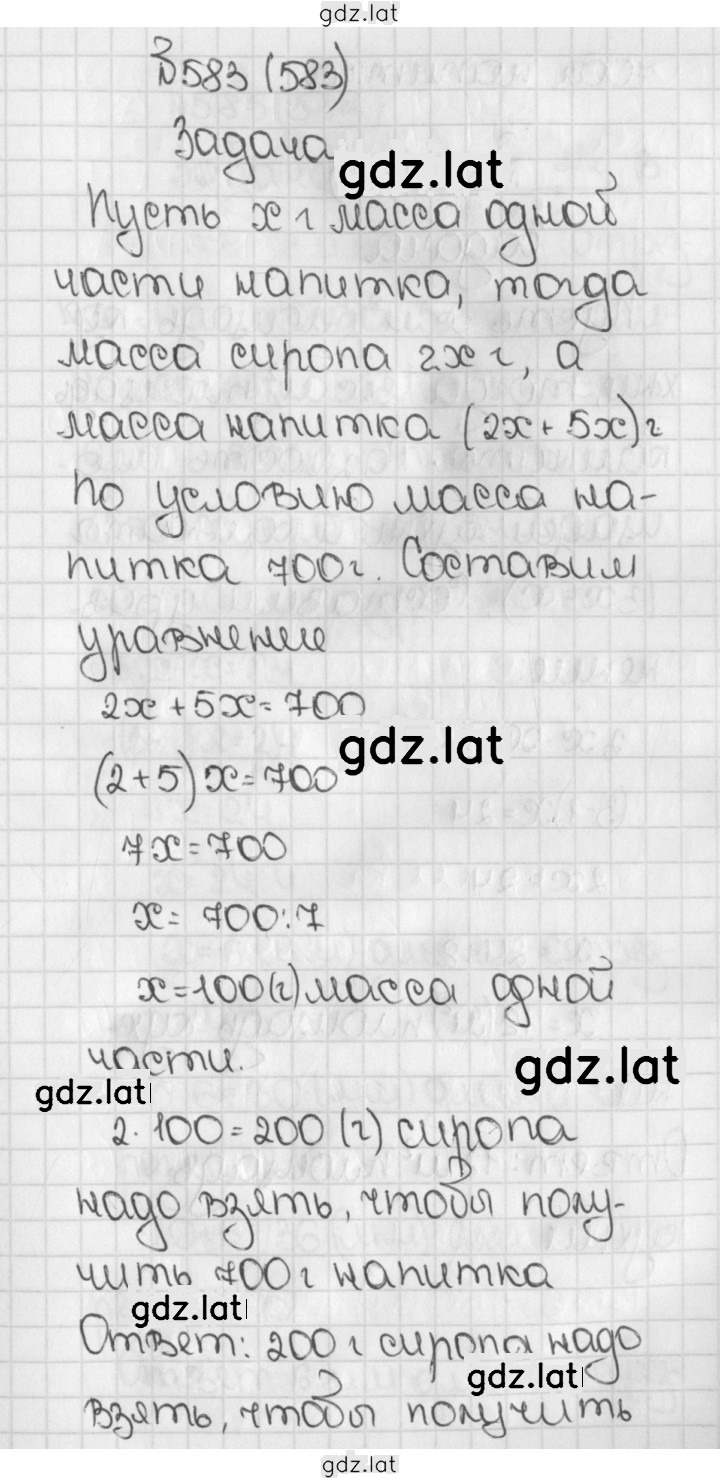 gdz.lat
№583 (583)
Задача
gdz.lat
Пусть x г масса одной
части напитка, тогда
масса сиропа 2x г, а
масса напитка (2x + 5x) г
По условию масса на-
питка 700 г. Составим
уравнение
2x + 5x = 700
gdz.lat
(2 + 5) x = 700
7x = 700
x = 700 : 7
x = 100 (г) масса одной
части.
gdz.lat
gdz.lat
2 · 100 = 200 (г) сиропа
надо взять, чтобы полу-
чить 700 г напитка
gdz.lat
Ответ: 200 г сиропа надо
gdz.lat
взять, чтобы получить
gdz.lat